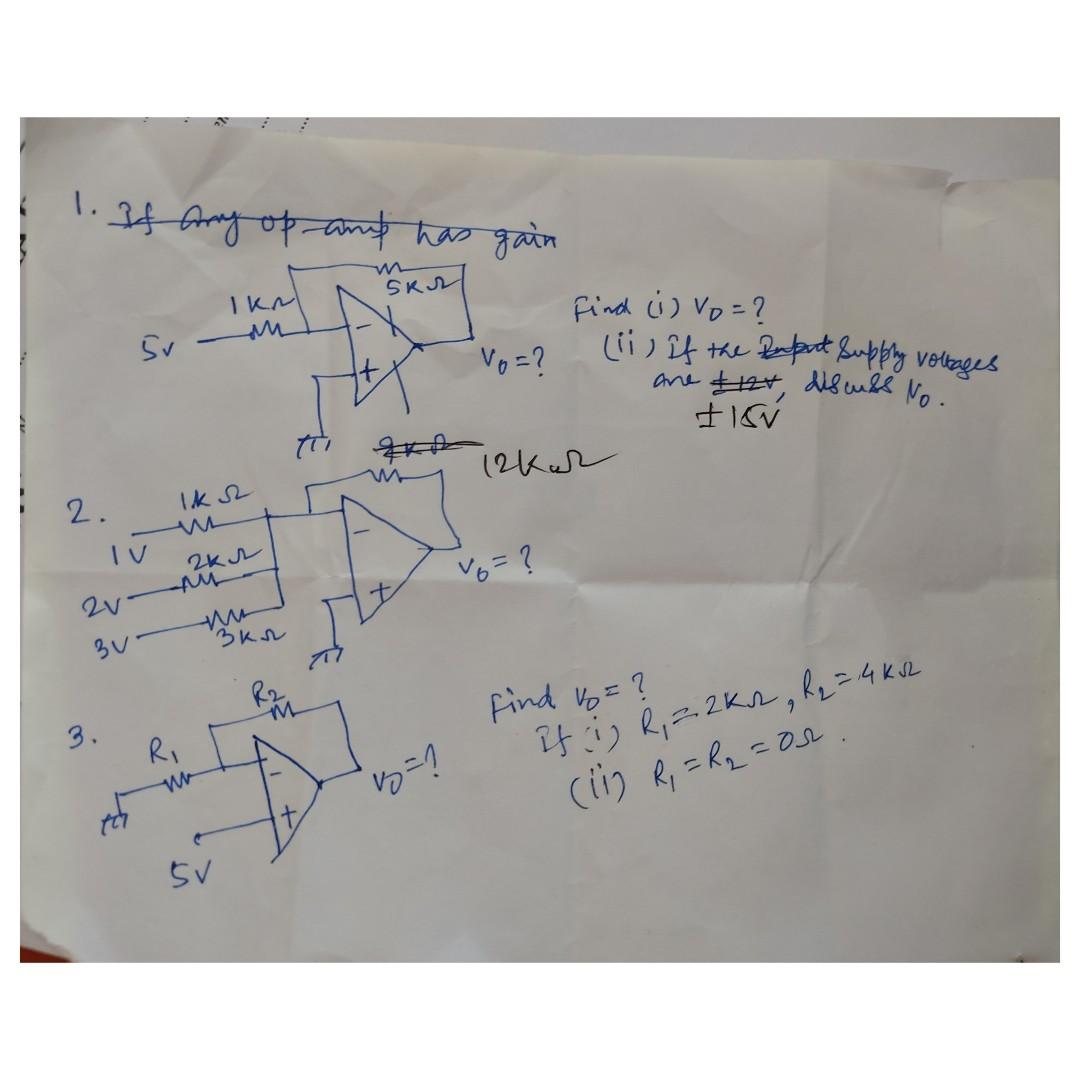 1. If any op-amp has gain
1KΩ
5KΩ
5V
-
+
V0=?
Find (i) V0=?
(ii) If the Input Supply voltages
are ±12V, discuss V0.
±15V
9KΩ 12KΩ
2.
1KΩ
1V
2KΩ
2V
3V
3KΩ
-
+
V0=?
3.
R2
R1
-
+
V0=?
5V
Find V0=?
If (i) R1=2KΩ, R2=4KΩ
(ii) R1=R2=0Ω.